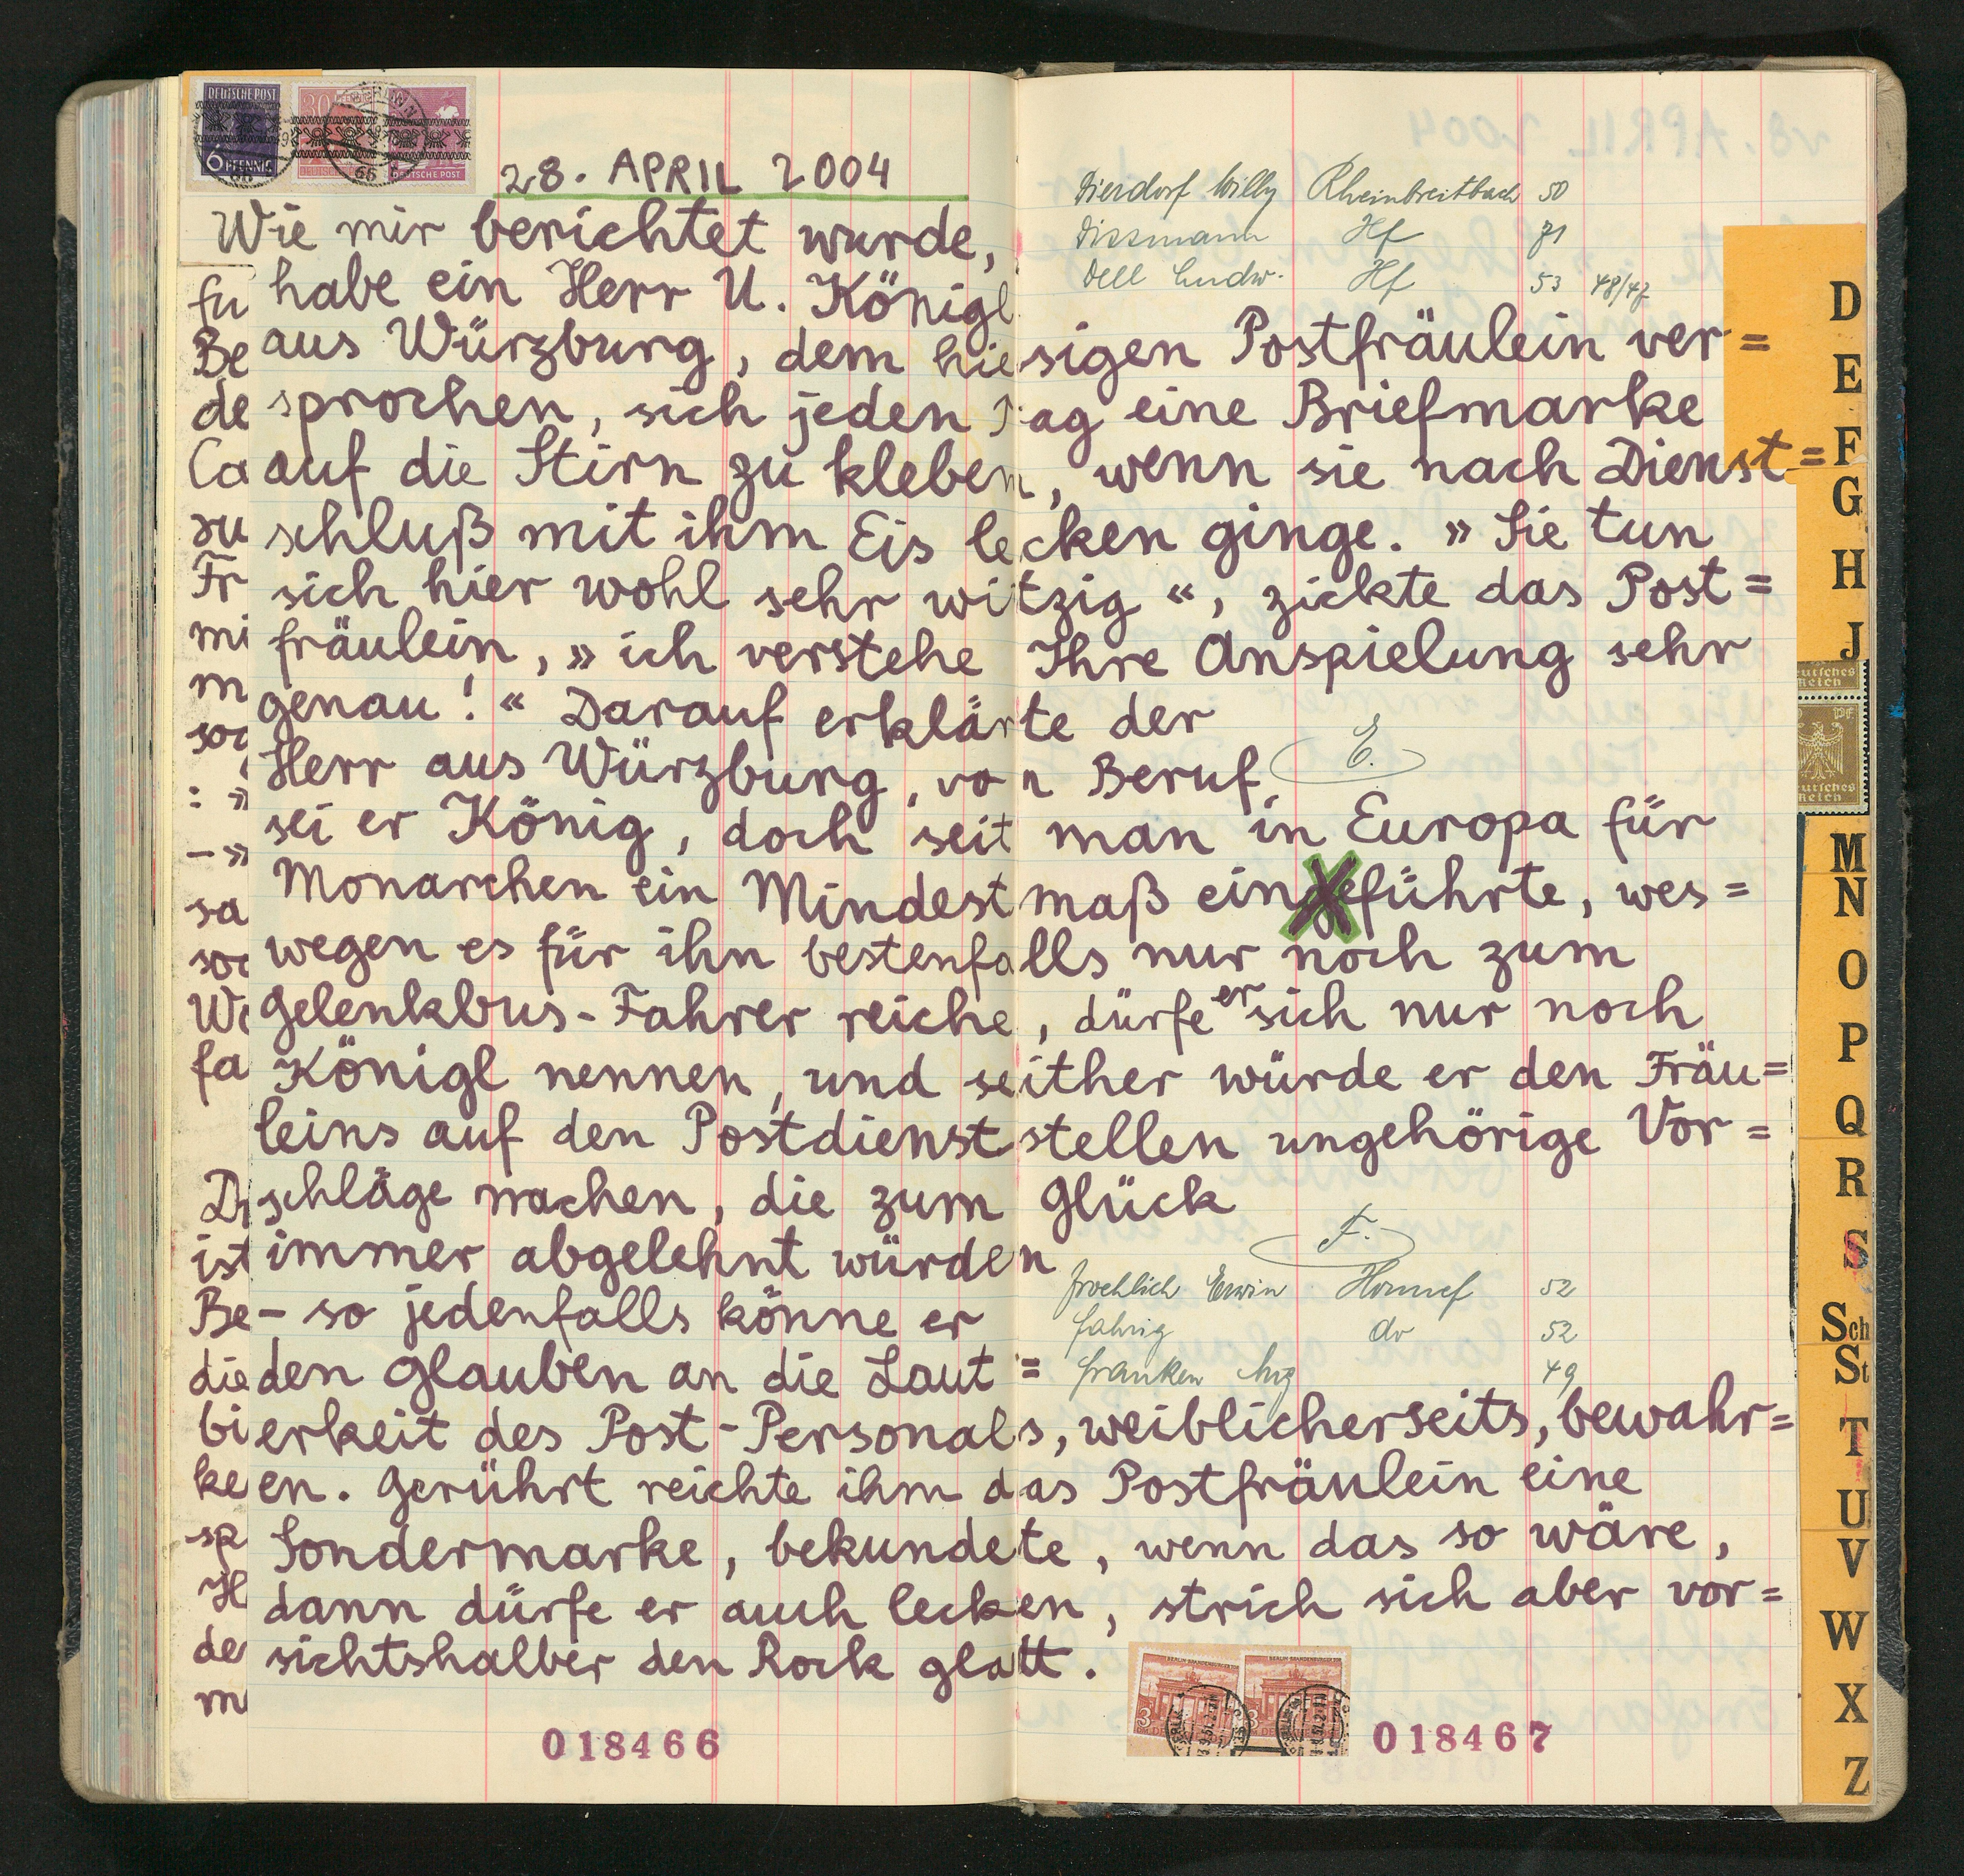 DEUTSCHE POST
6 PFENNIG
28. APRIL 2004
Wie mir berichtet wurde,
habe ein Herr U. Königl
aus Würzburg, dem hiesigen Postfräulein ver=
sprochen, sich jeden Tag eine Briefmarke
auf die Stirn zu kleben, wenn sie nach Dienst=
schluß mit ihm Eis lecken ginge. » Sie tun
sich hier wohl sehr witzig «, zickte das Post=
fräulein, » ich verstehe Ihre Anspielung sehr
genau! « Darauf erklärte der
Herr aus Würzburg, von Beruf
sei er König, doch seit man in Europa für
Monarchen ein Mindestmaß eingeführte, wes=
wegen es für ihn bestenfalls nur noch zum
Gelenkbus-Fahrer reiche, dürfe er sich nur noch
Königl nennen, und seither würde er den Fräu=
leins auf den Postdienststellen ungehörige Vor=
schläge machen, die zum Glück
immer abgelehnt würden
– so jedenfalls könne er
den Glauben an die Laut=
erkeit des Post-Personals, weiblicherseits, bewahr=
en. Gerührt reichte ihm das Postfräulein eine
Sondermarke, bekundete, wenn das so wäre,
dann dürfe er auch lecken, strich sich aber vor=
sichtshalber den Rock glatt.
018466
fu
Be
de
Ca
su
Fr
mi
m
soc
: »
– »
sa
soc
We
fa
ist
Be
die
bi
ke
sp
H
de
m
Dierdorf Willy Rheinbreitbach 50
Dissmann Hf 71
Dell Ludw. Hf 53 48/47
E.
F.
Froehlich Erwin Honnef 52
Fahrig do 52
Franken 49
018467
D
E
F
G
H
J
Deutsches Reich
Deutsches Reich
M
N
O
P
Q
R
S
Sch
St
T
U
V
W
X
Z